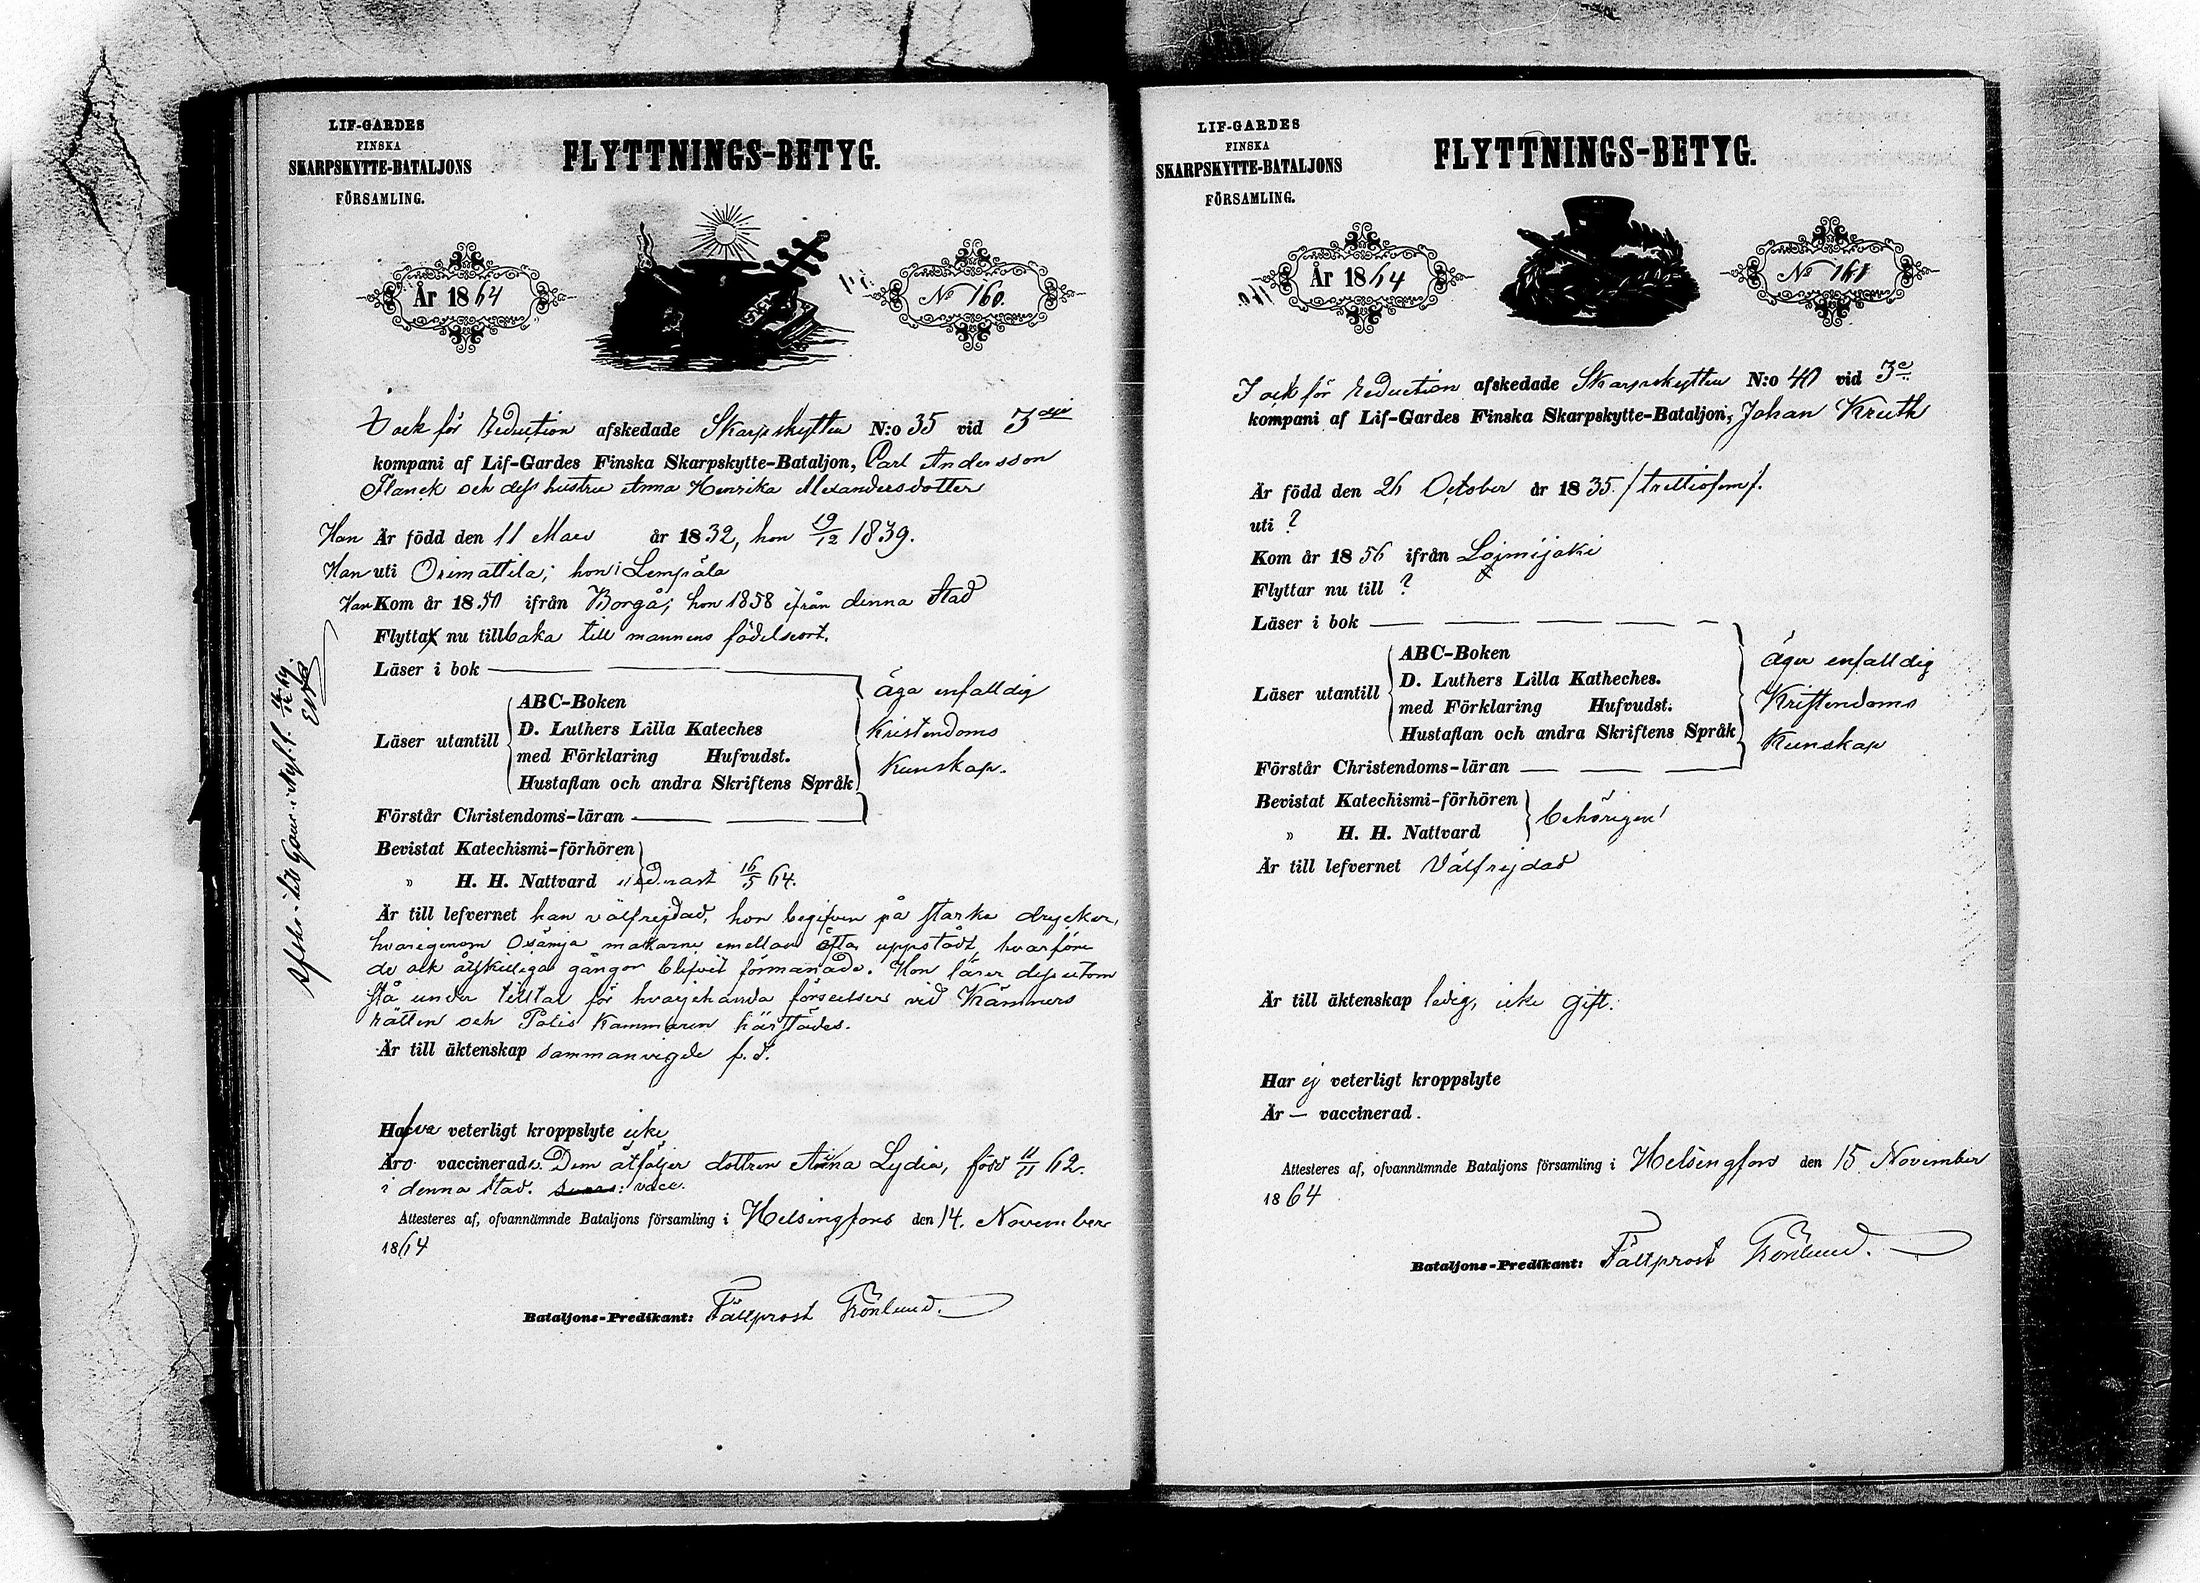 LIF-GARDES
FINSKA
SKARPSKYTTE-BATALJONS
FÖRSAMLING.
FLYTTNINGS-BETYG.
År 1864
No 160.
och för Reduction afskedade Skarpskytten N:o 35 vid 3dje
kompani af Lif-Gardes Finska Skarpskytte-Bataljon, Carl Andersson
Flanck och dess hustru Anna Henrika Alexandersdotter
Han Är född den 11 Mars år 1832, hon 19/12 1839.
Han uti Orimattila; hon i Lempäla
Han Kom år 1850 ifrån Borgå; hon 1858 ifrån denna Stad
Flytta nu tillbaka till mannens födelseort.
Läser i bok
Läser utantill
ABC-Boken
D. Luthers Lilla Kateches
med Förklaring Hufvudst.
Hustaflan och andra Skriftens Språk
Förstår Christendoms-läran
äga enfalldig
Kristendoms
Kunskap.
Bevistat Katechismi-förhören
" H. H. Nattvard sednast 16/5 64.
Är till lefvernet han välfrejdad, hon begifven på starka drycker,
hvarigenom Osämja makarne emellan ofta uppstådt, hvarföre
de ock åtskilliga gångor blifvit förmanade. Hon lärer dessutom
stå under tilltal för hvarjehanda förseelser vid Kämners
rätten och Polis Kammaren härstädes.
Är till äktenskap sammanvigde
Hafva veterligt kroppslyte icke
Äro vaccinerade. Dem åtföljer dottren Anna Lydia, född 11/11 62.
i denna stad. vacc.
Attesteres af, ofvannämnde Bataljons församling i Helsingfors den 14. November
1864
Bataljons-Predikant: Fältprost Grönlund.
LIF-GARDES
FINSKA
SKARPSKYTTE-BATALJONS
FÖRSAMLING.
FLYTTNINGS-BETYG.
År 1864
No 161
och för Reduction afskedade Skarpskytten N:o 40 vid 3e
kompani af Lif-Gardes Finska Skarpskytte-Bataljon, Johan Kruth
Är född den 26 October år 1835. /trettiofem/.
uti ?
Kom år 1856 ifrån Loimijoki
Flyttar nu till ?
Läser i bok
Läser utantill
ABC-Boken
D. Luthers Lilla Katheches.
med Förklaring Hufvudst.
Hustaflan och andra Skriftens Språk
Förstår Christendoms-läran
äger enfalldig
Kristendoms
Kunskap
Bevistat Katechismi-förhören
" H. H. Nattvard
behörigen
Är till lefvernet Välfrejdad
Är till äktenskap ledig, icke gift.
Har ej veterligt kroppslyte
Är — vaccinerad.
Attesteres af, ofvannämnde Bataljons församling i Helsingfors den 15 November
1864
Bataljons-Predikant: Fältprost Grönlund.